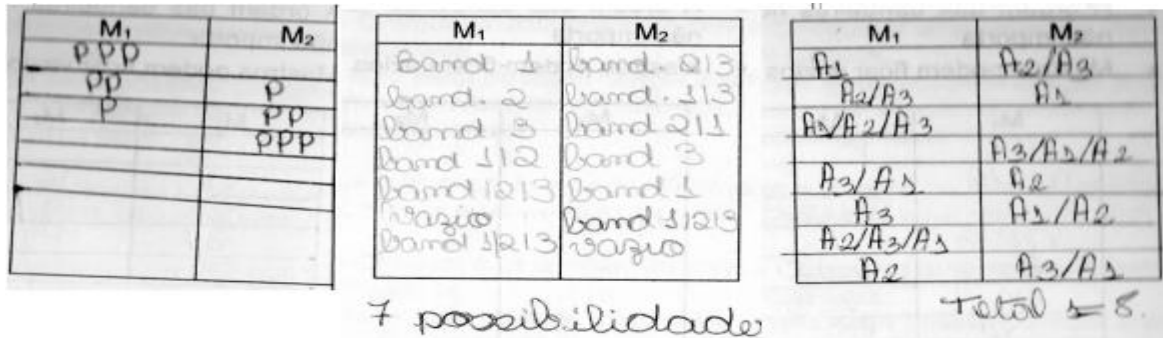 M₁ M₂
PPP
PP P
P PP
PPP
M₁ M₂
Band 1 band 213
band. 2 band. 113
band 3 band 211
band 112 band 3
band 1213 band 1
vazio band 11213
band 11213 vazio
7 possibilidade
M₁ M₂
A1 A2/A3
A2/A3 A1
A1/A2/A3
A3/A1/A2
A3/A1 A2
A3 A1/A2
A2/A3/A1
A2 A3/A1
Total = 8.